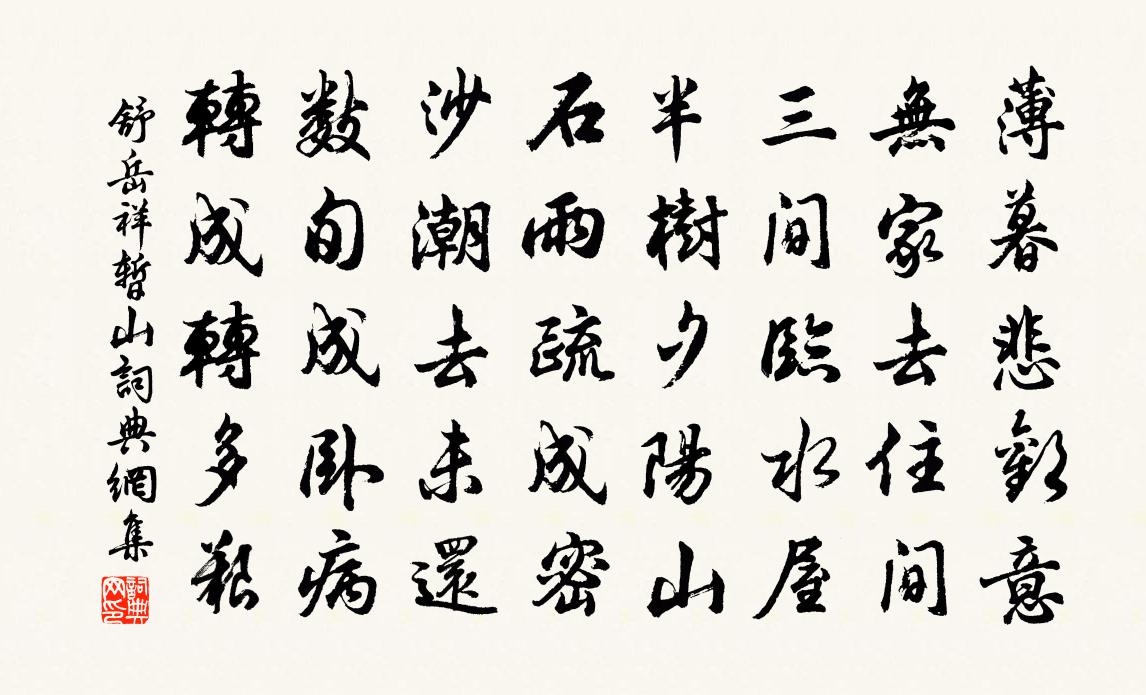 薄暮悲歡意
無家去住間
三間臨水屋
半樹夕陽山
石雨疏成密
沙潮去未還
數旬成卧病
轉成轉多艱
舒岳祥暫山詞典網集
詞典網印